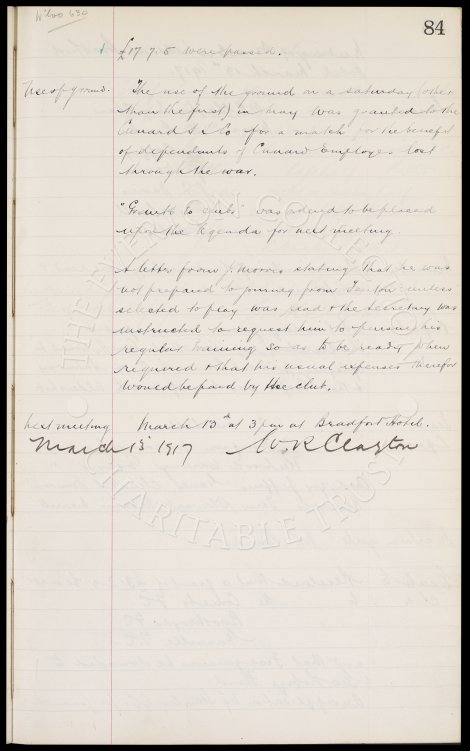 84
£17.7.5 were passed.
Use of ground. The use of the ground on a Saturday (other
than the first) in May was granted to the
Cunard S.S. Co for a match for the benefit
of dependants of Cunard Employes lost
through the war.
"Grants to clubs" was ordered to be placed
upon the Agenda for next meeting.
A letter from J. Morris stating that he was
not prepared to journey from unless
selected to play was read & the Secretary was
instructed to request him to pursue his
regular training so as to be ready when
required & that his usual expenses therefor
would be paid by the club.
next meeting March 13th at 3 pm at Bradford Hotel.
March 13 1917 W. R. Clayton
THE EVERTON COLLECTION
CHARITABLE TRUST